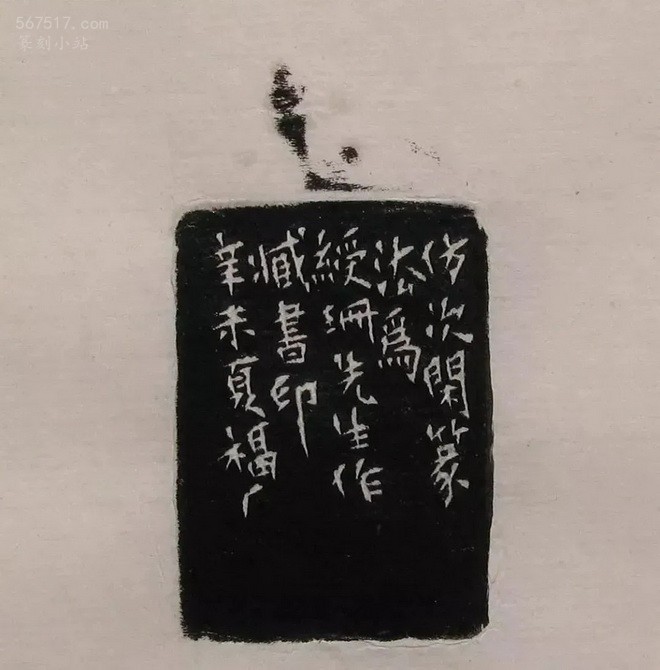 567517.com
篆刻小站
仿次閑篆
法爲
綬珊先生作
臧書印
辛未夏福厂